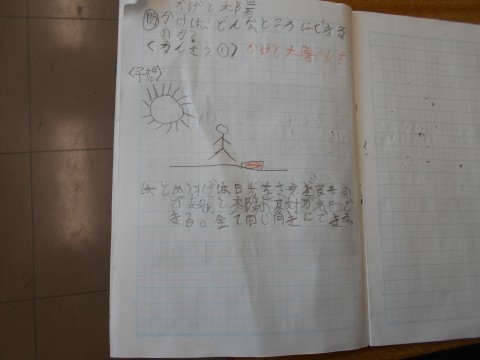 かげと太陽
問 かげは、どんなところにできる
のか。
〈かんさつ①〉 かげと太陽
〈予想〉
まとめ かげは日光をさえぎるもの
があると太陽の反対がわにで
きる。全て同じ向きにできる。